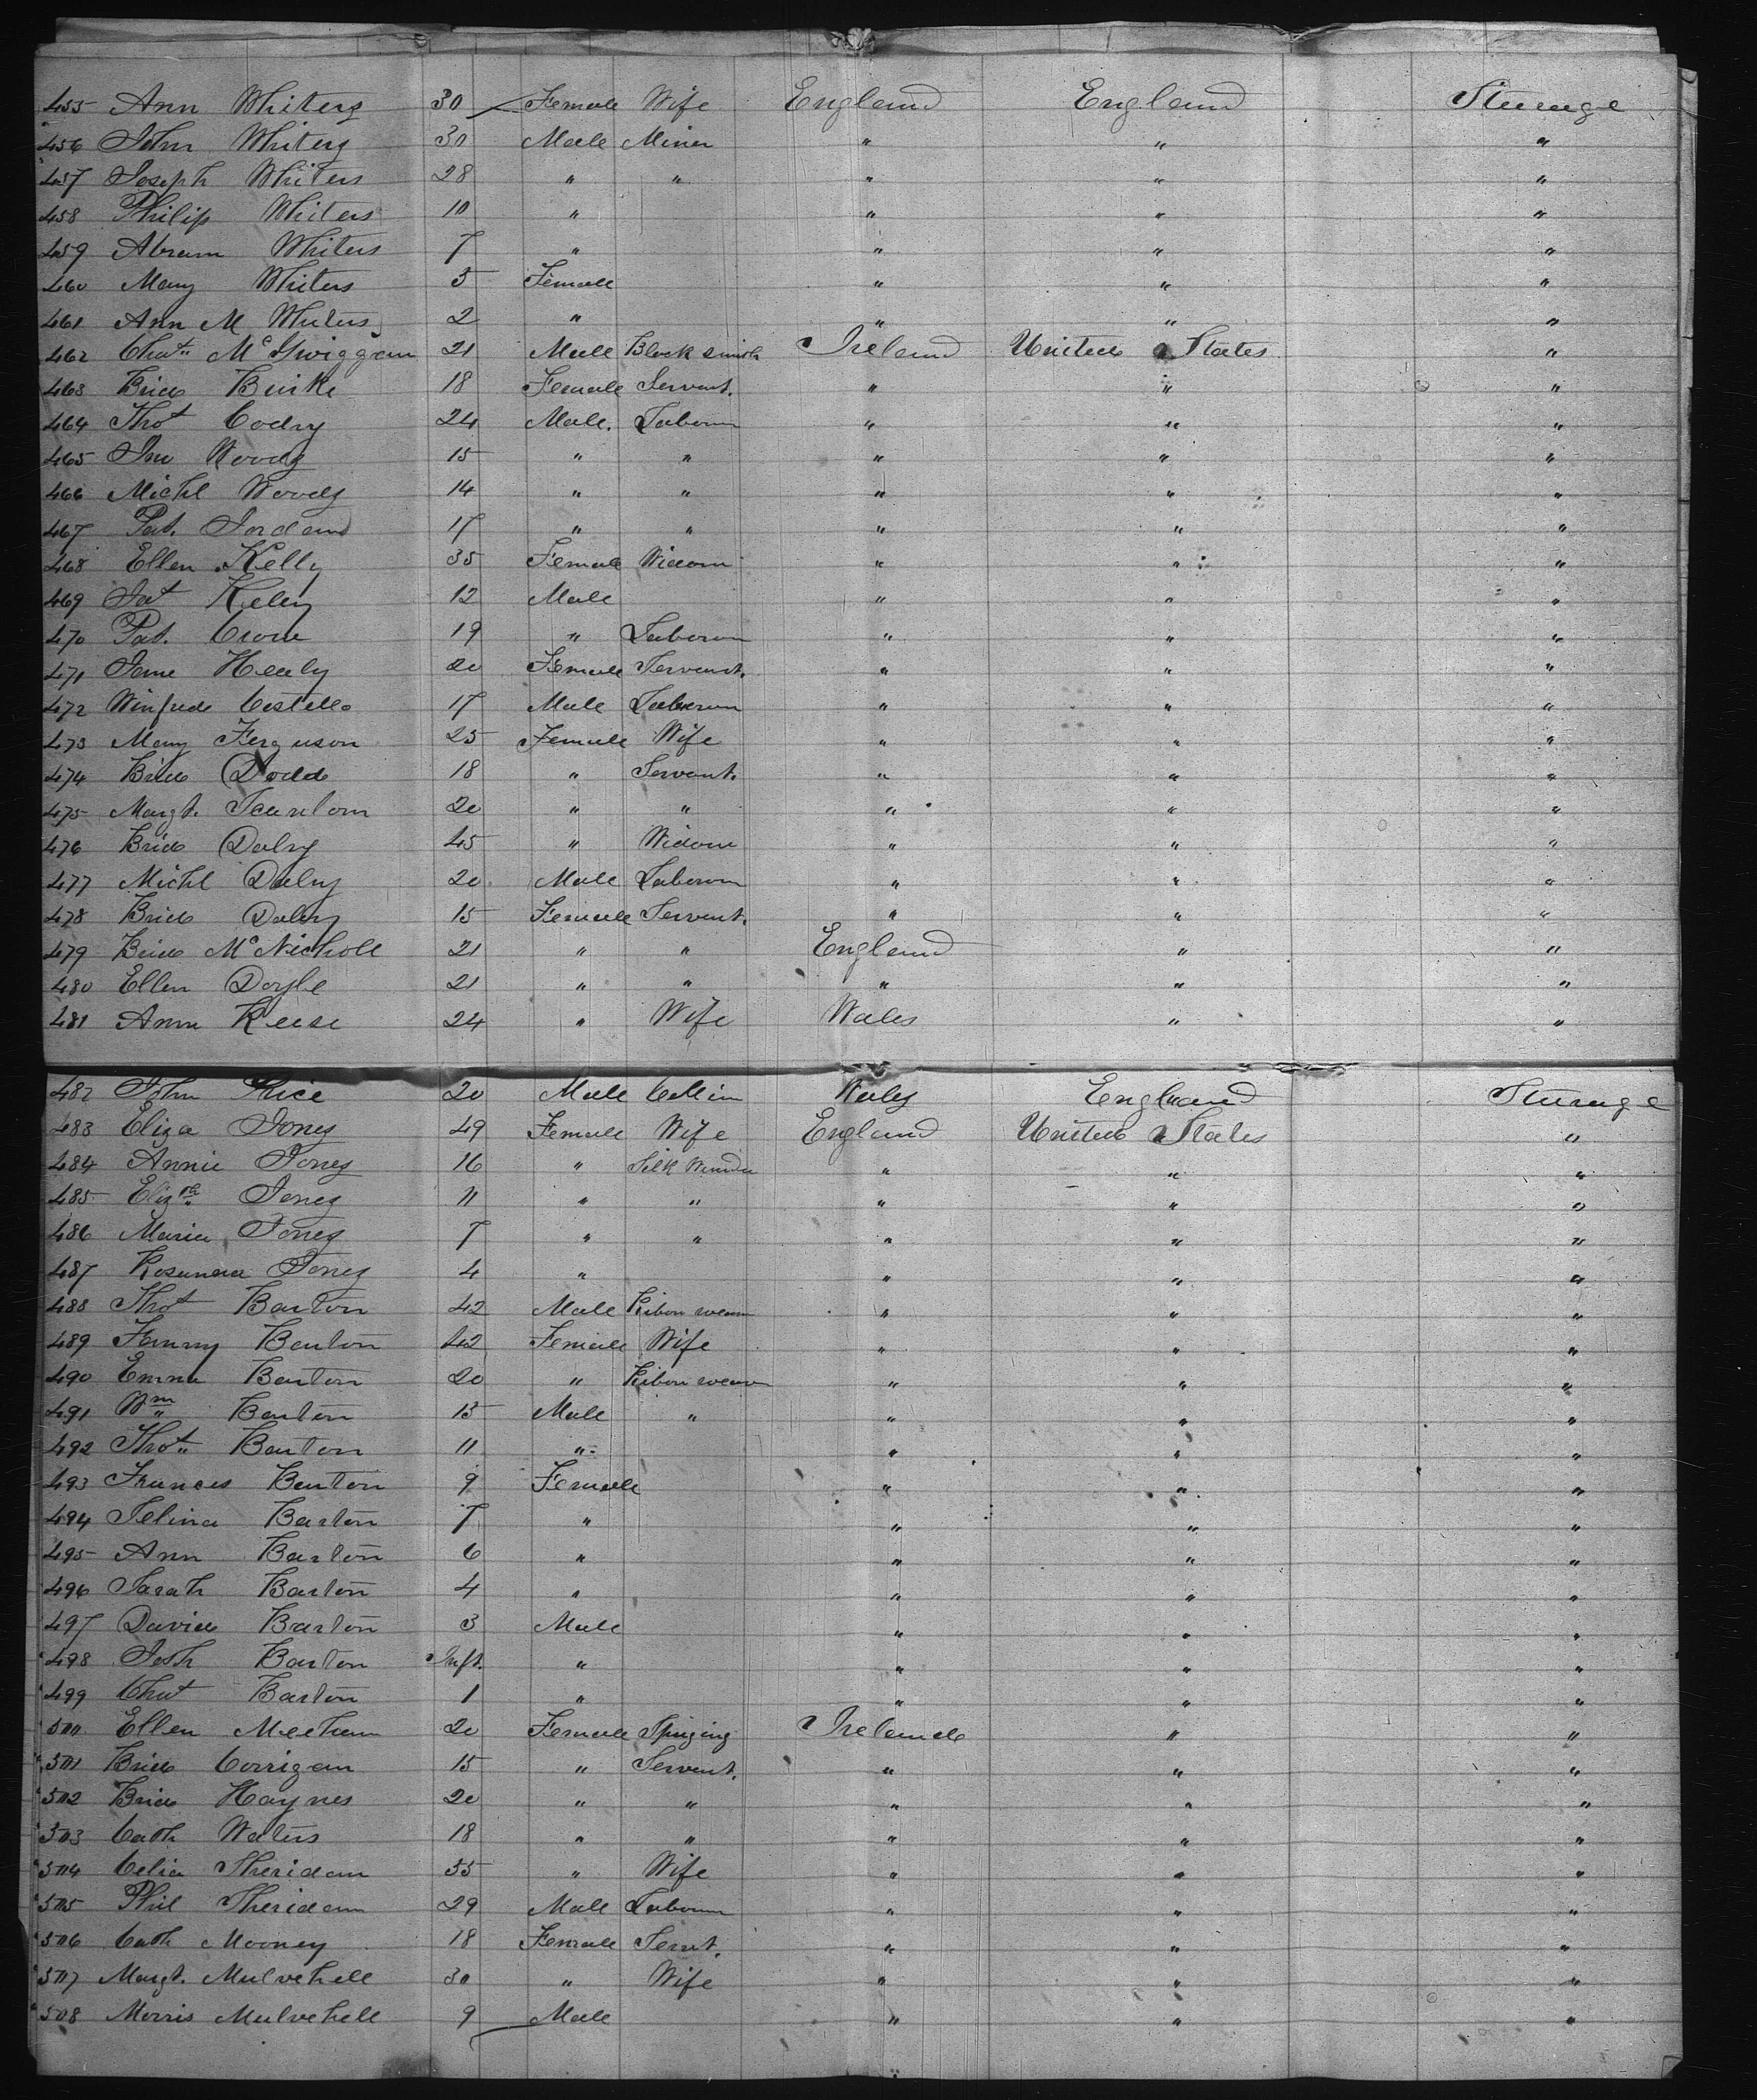 455 Ann Whiters 30 Female Wife England England Steerage
456 John Whiters 30 Male Miner " " "
457 Joseph Whiters 28 " " " " "
458 Philip Whiters 10 " " " "
459 Abram Whiters 7 " " " "
460 Mary Whiters 5 Female " " "
461 Ann M Whiters 2 " " " "
462 Chas McGwiggan 21 Male Black smith Ireland United States "
463 Brid Burke 18 Female Servant. " " "
464 Thos Cody 24 Male. Laborer " " "
465 Jno Woods 15 " " " " "
466 Michl Woods 14 " " " " "
467 Pat. Jordan 17 " " " " "
468 Ellen Kelly 35 Female Widow " " "
469 Pat Kelly 12 Male " " "
470 Pat. Crow 19 " Laborer " " "
471 Jane Healy 20 Female Servant. " " "
472 Winfred Costello 17 Male Laborer " " "
473 Mary Ferguson 25 Female Wife " " "
474 Brid Dodd 18 " Servant. " " "
475 Margt. Scanlon 20 " " " " "
476 Brid Daly 45 " Widow " " "
477 Michl Daly 20 Male Laborer " " "
478 Brid Daly 15 Female Servant. " " "
479 Brid McNicholl 21 " " England " "
480 Ellen Doyle 21 " " " " "
481 Ann Reese 24 " Wife Wales " "
482 John Rice 20 Male Wales England Steerage
483 Eliza Jones 49 Female Wife England United States "
484 Annie Jones 16 " Silk Winder " " "
485 Elizth Jones 11 " " " " "
486 Maria Jones 7 " " " " "
487 Rosanna Jones 4 " " " "
488 Thos Barton 42 Male Ribon weaver " " "
489 Fanny Barton 42 Female Wife " " "
490 Emma Barton 20 " Ribon weaver " " "
491 Wm Barton 13 Male " " " "
492 Thos Barton 11 " " " "
493 Frances Barton 9 Female " " "
494 Selina Barton 7 " " " "
495 Ann Barton 6 " " " "
496 Sarah Barton 4 " " " "
497 David Barton 3 Male " " "
498 Josh Barton Inft. " " " "
499 Chas Barton 1 " " " "
500 Ellen Meehan 20 Female Ireland " "
501 Brid Corrigan 15 " Servant. " " "
502 Brid Haynes 20 " " " " "
503 Cath Waters 18 " " " " "
504 Celia Sheridan 55 " Wife " " "
505 Phil Sheridan 29 Male Laborer " " "
506 Cath Mooney 18 Female Servt. " " "
507 Margt. Mulvehell 30 " Wife " " "
508 Morris Mulvehell 9 Male " " "